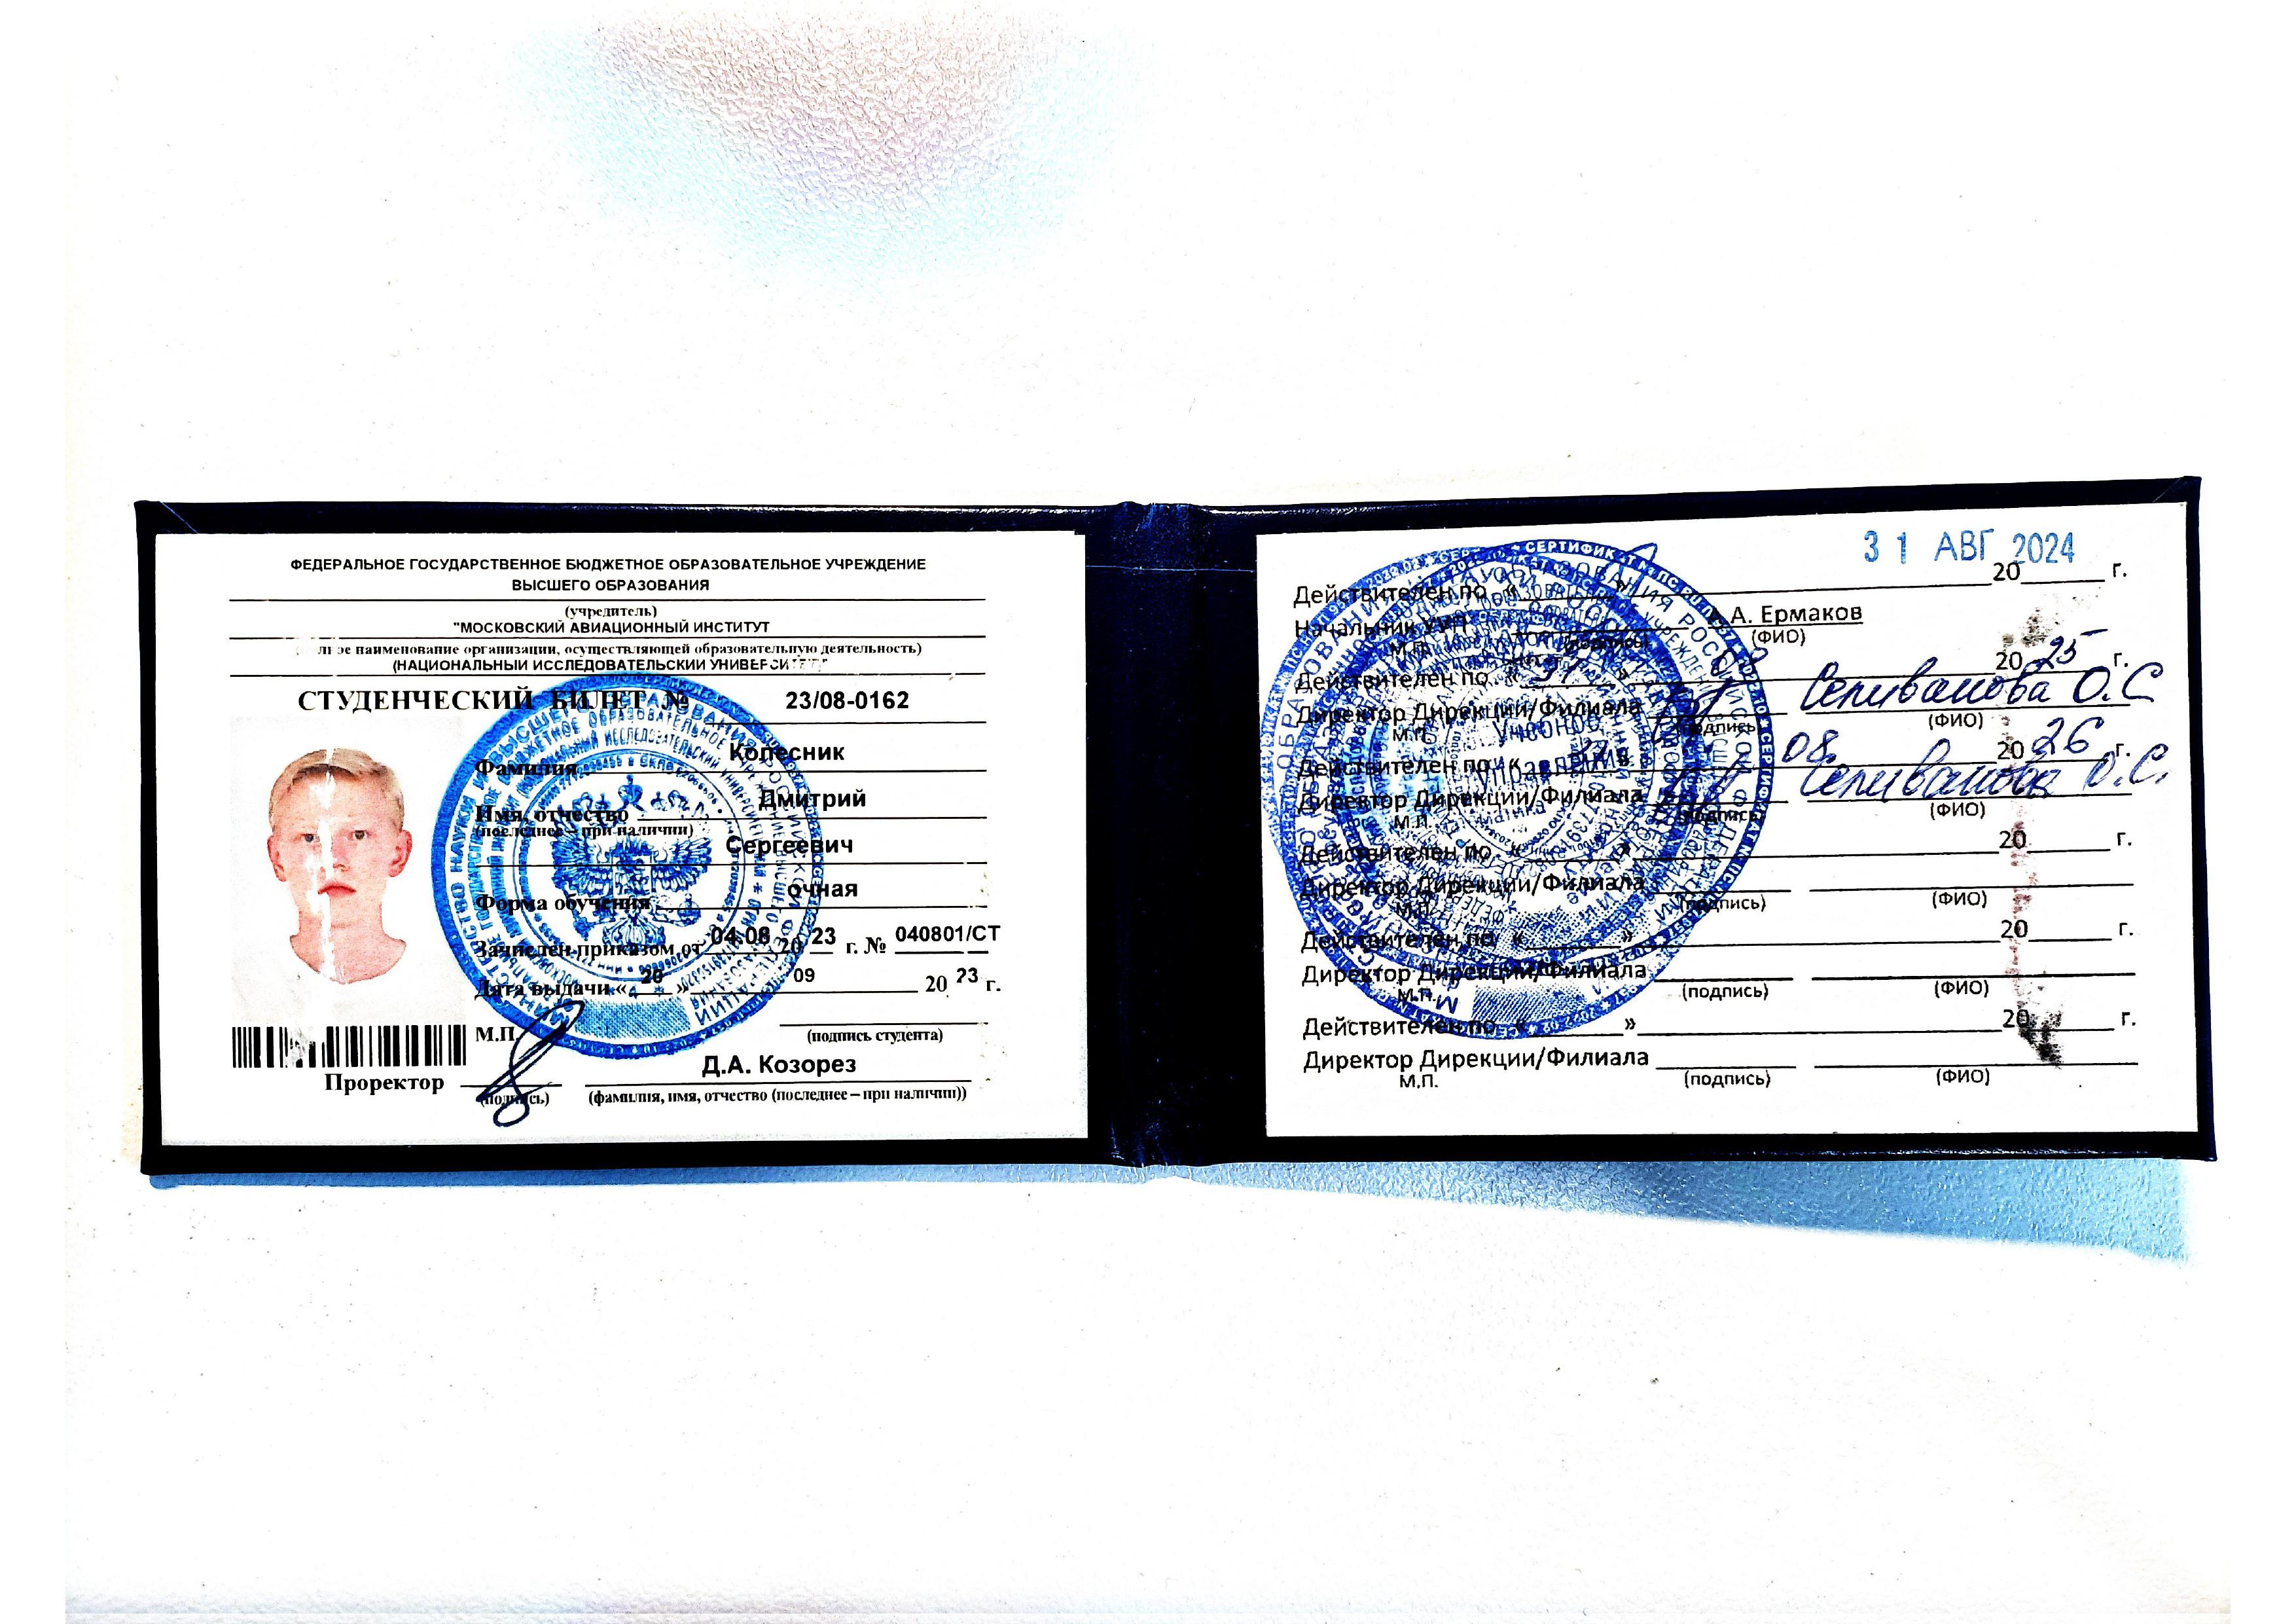 ФЕДЕРАЛЬНОЕ ГОСУДАРСТВЕННОЕ БЮДЖЕТНОЕ ОБРАЗОВАТЕЛЬНОЕ УЧРЕЖДЕНИЕ
ВЫСШЕГО ОБРАЗОВАНИЯ
(учредитель)
"МОСКОВСКИЙ АВИАЦИОННЫЙ ИНСТИТУТ
наименование организации, осуществляющей образовательную деятельность)
(НАЦИОНАЛЬНЫЙ ИССЛЕДОВАТЕЛЬСКИЙ УНИВЕРСИТЕТ)"
СТУДЕНЧЕСКИЙ БИЛЕТ № 23/08-0162
Фамилия Колесник
Имя, отчество Дмитрий
(последнее – при наличии)
Сергеевич
Форма обучения очная
Зачислен приказом от 04.08 20 23 г. № 040801/СТ
Дата выдачи « 20 » 09 20 23 г.
М.П.
(подпись студента)
Д.А. Козорез
Проректор
(подпись) (фамилия, имя, отчество (последнее – при наличии))
31 АВГ 2024
Действителен по « » 20 г.
Начальник А. Ермаков
М.П. (подпись) (ФИО)
Действителен по « 31 » 08 20 25 г.
Директор Дирекции/Филиала Селиванова О.С
М.П. (подпись) (ФИО)
Действителен по « » 08. 20 26 г.
Директор Дирекции/Филиала Селиванова О.С.
М.П. (подпись) (ФИО)
Действителен по « » 20 г.
Директор Дирекции/Филиала
М.П. (подпись) (ФИО)
Действителен по « » 20 г.
Директор Дирекции/Филиала
М.П. (подпись) (ФИО)
Действителен по « » 20 г.
Директор Дирекции/Филиала
М.П. (подпись) (ФИО)